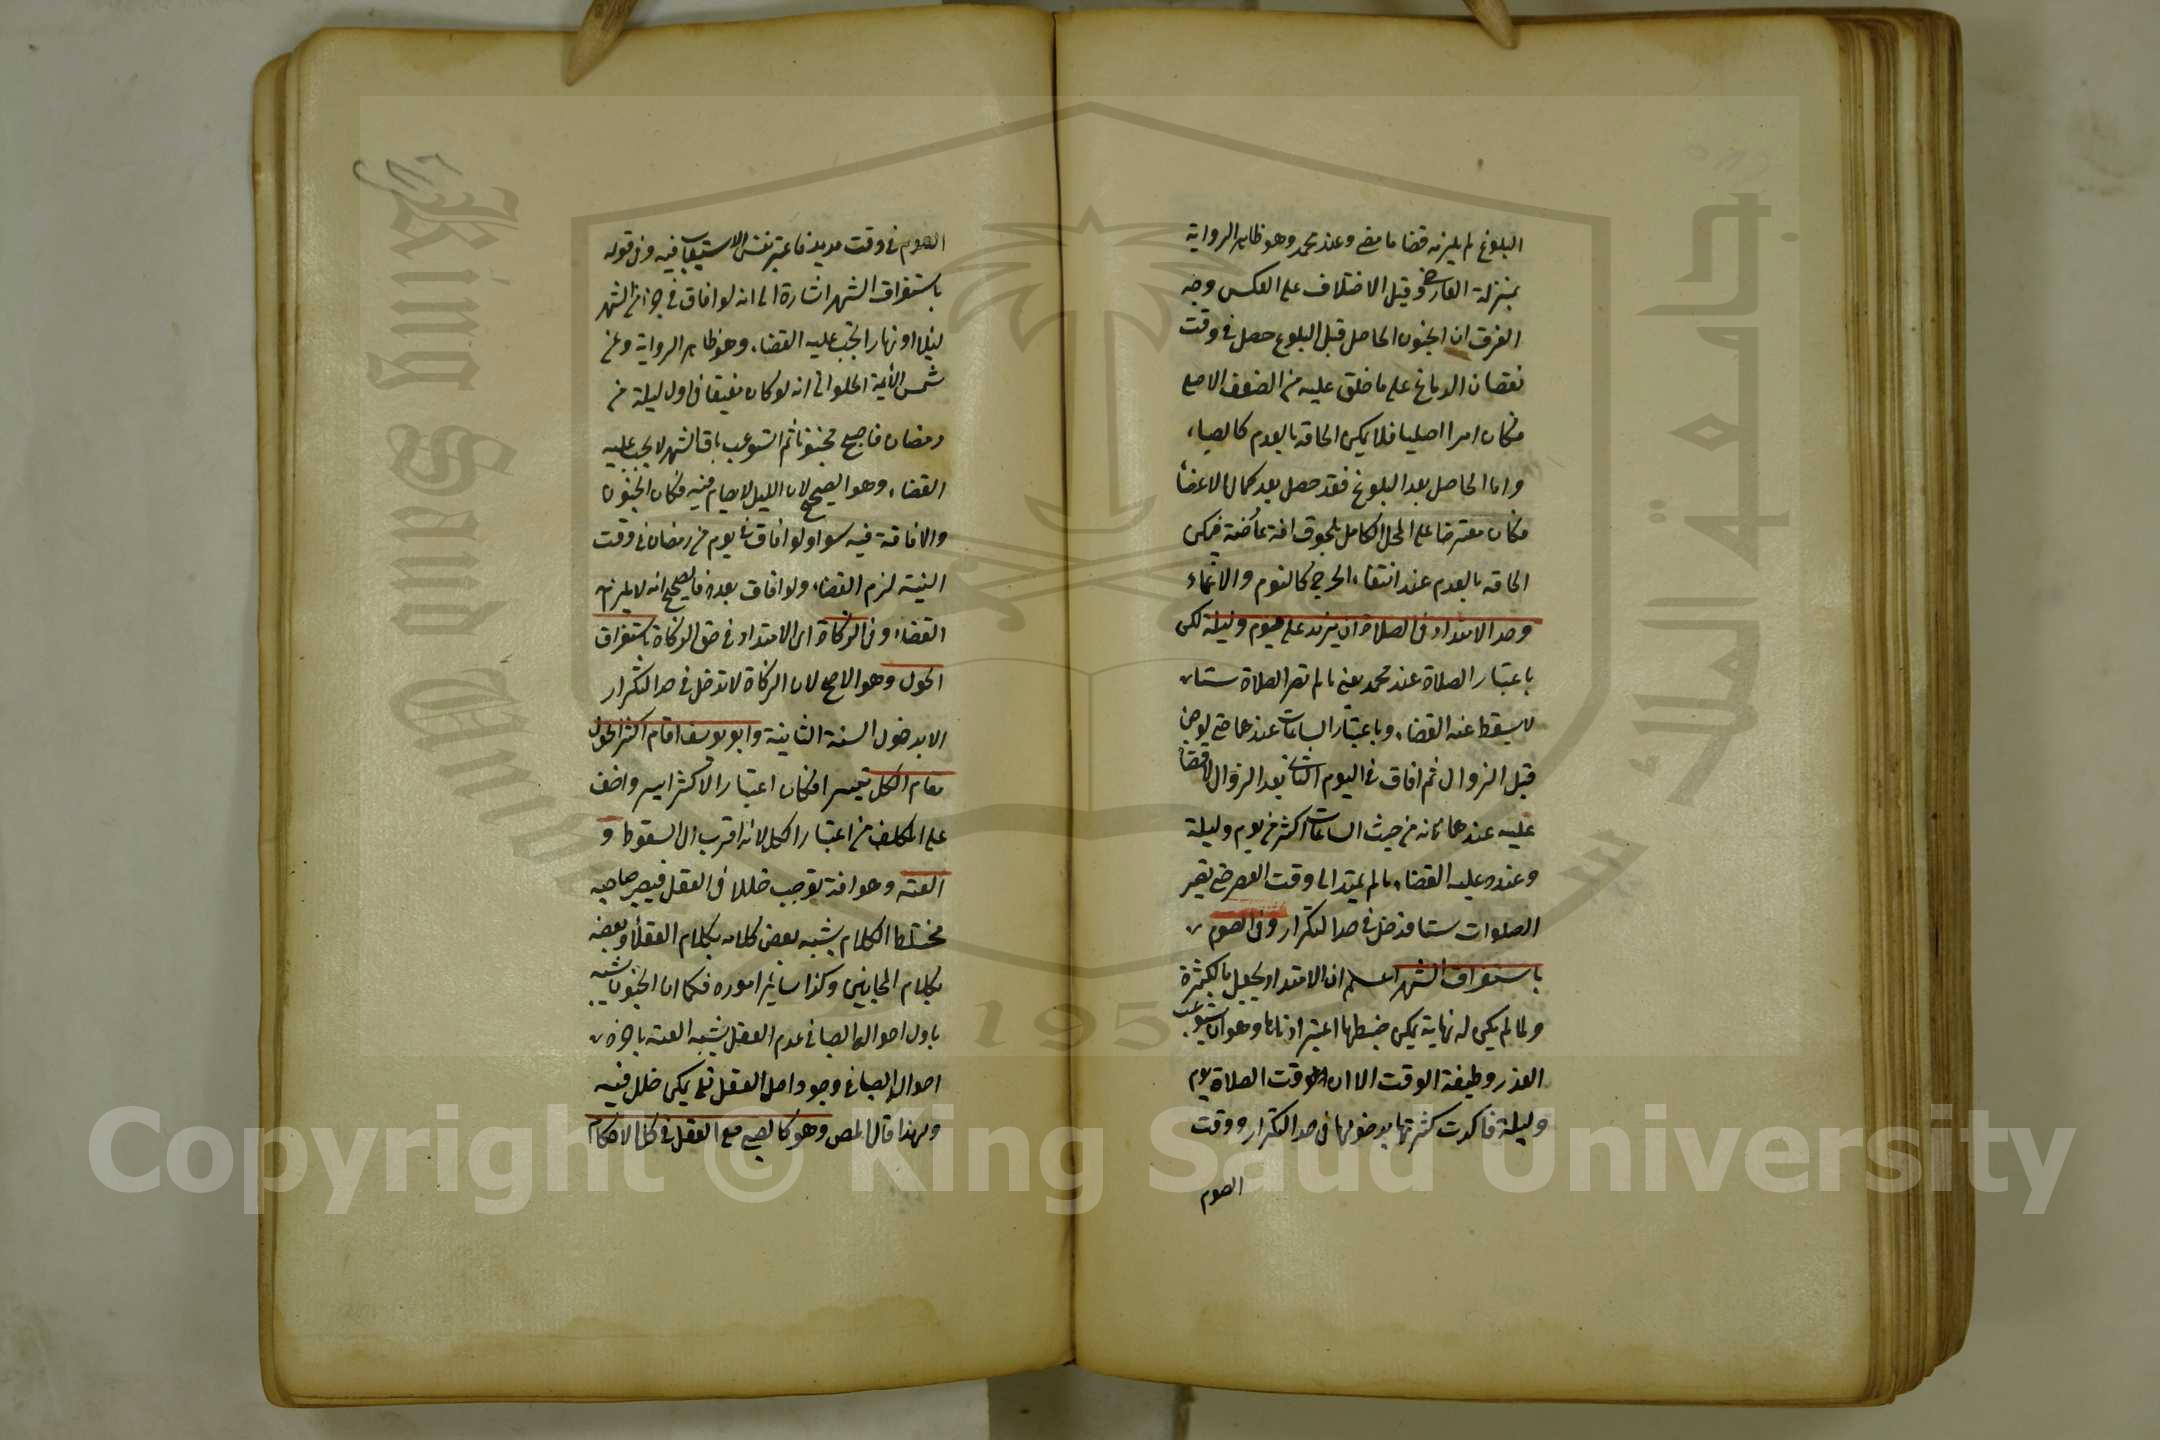 البلوغ لم يلزمه قضا ما مضى وعند محمد وهو ظاهر الرواية
بمنزلة العارض وقيل الاختلاف على العكس وجه
الفرق ان الجنون الحاصل قبل البلوغ حصل في وقت
نقصان الدماغ على ما خلق عليه من الضعف الاصلي
فكان امرا اصليا فلا يمكن الحاقه بالعدم كالصباء
واما الحاصل بعد البلوغ فقد حصل بعد كمال الاعضا
فكان معترضا على المحل الكامل بلحوق افة عارضة فيمكن
الحاقه بالعدم عند انتفاء الحرج كالنوم والاغماء
وحد الامتداد في الصلاة ان يزيد على يوم وليلة لكن
باعتبار الصلاة عند محمد يعني ما لم تصر الصلاة ستا
لا يسقط عنه القضاء وباعتبار الساعات عندهما حتى لو جن
قبل الزوال ثم افاق في اليوم الثاني بعد الزوال لا قضا
عليه عندهما لانه من حيث الساعات اكثر من يوم وليلة
وعنده عليه القضاء ما لم يمتد الى وقت العصر حتى تصير
الصلوات ستا فتدخل في حد التكرار وفي الصوم
باستغراق الشهر اعلم ان الامتداد يحصل بالكثرة
ولما لم يكن له نهاية يمكن ضبطها اعتبر ادناها وهو ان يستوعب
العذر وظيفة الوقت الا ان وقت الصلاة يوم
وليلة فاكدت كثرتها بدخولها في حد التكرار ووقت
الصوم
الصوم في وقت مديد فاعتبر نفس الاستيعاب فيه وفي قوله
باستغراق الشهر اشارة الى انه لو افاق في جزء من الشهر
ليلا او نهارا يجب عليه القضاء وهو ظاهر الرواية وعن
شمس الأئمة الحلواني انه لو كان مفيقا في اول ليلة من
رمضان فاصبح مجنونا ثم استوعب باقي الشهر لا يجب عليه
القضاء وهو الصحيح لان الليل لا يصام فيه فكان الجنون
والافاقة فيه سواء ولو افاق في يوم من رمضان في وقت
النية لزم القضاء ولو افاق بعده فالصحيح انه لا يلزمه
القضاء وفي الزكاة اي الامتداد في حق الزكاة باستغراق
الحول وهو الاصح لان الزكاة لا تدخل في حد التكرار
الا بدخول السنة الثانية وابو يوسف اقام اكثر الحول
مقام الكل تيسيرا فكان اعتبار الاكثر ايسر واخف
على المكلف من اعتبار الكل لانه اقرب الى السقوط و
العته وهو افة توجب خللا في العقل فيصير صاحبه
مختلط الكلام يشبه بعض كلامه بكلام العقلاء وبعضه
بكلام المجانين وكذا سائر اموره فكما ان الجنون يشبه
باول احوال الصبا في عدم العقل يشبه العته باخر
احوال الصبا في وجود اصل العقل مع تمكن خلل فيه
ولهذا قال المص وهو كالصبي مع العقل في كل الاحكام
جامعة الملك سعود
King Saud University
195
Copyright © King Saud University